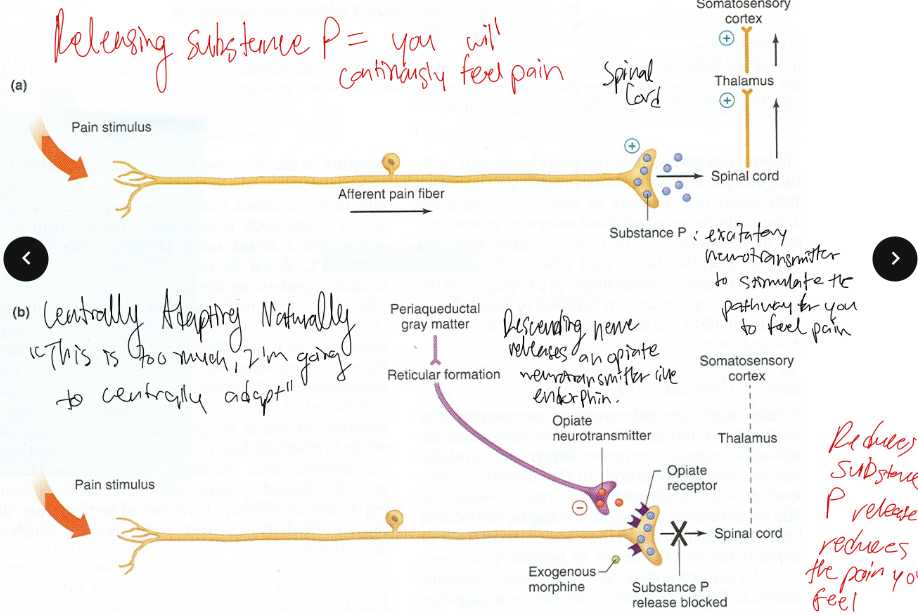 Releasing substance P = you will
continously feel pain
(a)
Pain stimulus
Afferent pain fiber
Spinal
Cord
Somatosensory
cortex
+
Thalamus
+
+
Spinal cord
Substance P
: excitatory
neurotransmitter
to stimulate the
pathway for you
to feel pain
(b)
Centrally Adapting Naturally
"This is too much, I'm going
to centrally adapt"
Periaqueductal
gray matter
Reticular formation
Descending nerve
releases an opiate
neurotransmitter like
endorphin.
Opiate
neurotransmitter
Opiate
receptor
Somatosensory
cortex
Thalamus
Spinal cord
Pain stimulus
−
Exogenous
morphine
Substance P
release blocked
Reduces
substance
P release
reduces
the pain you
feel